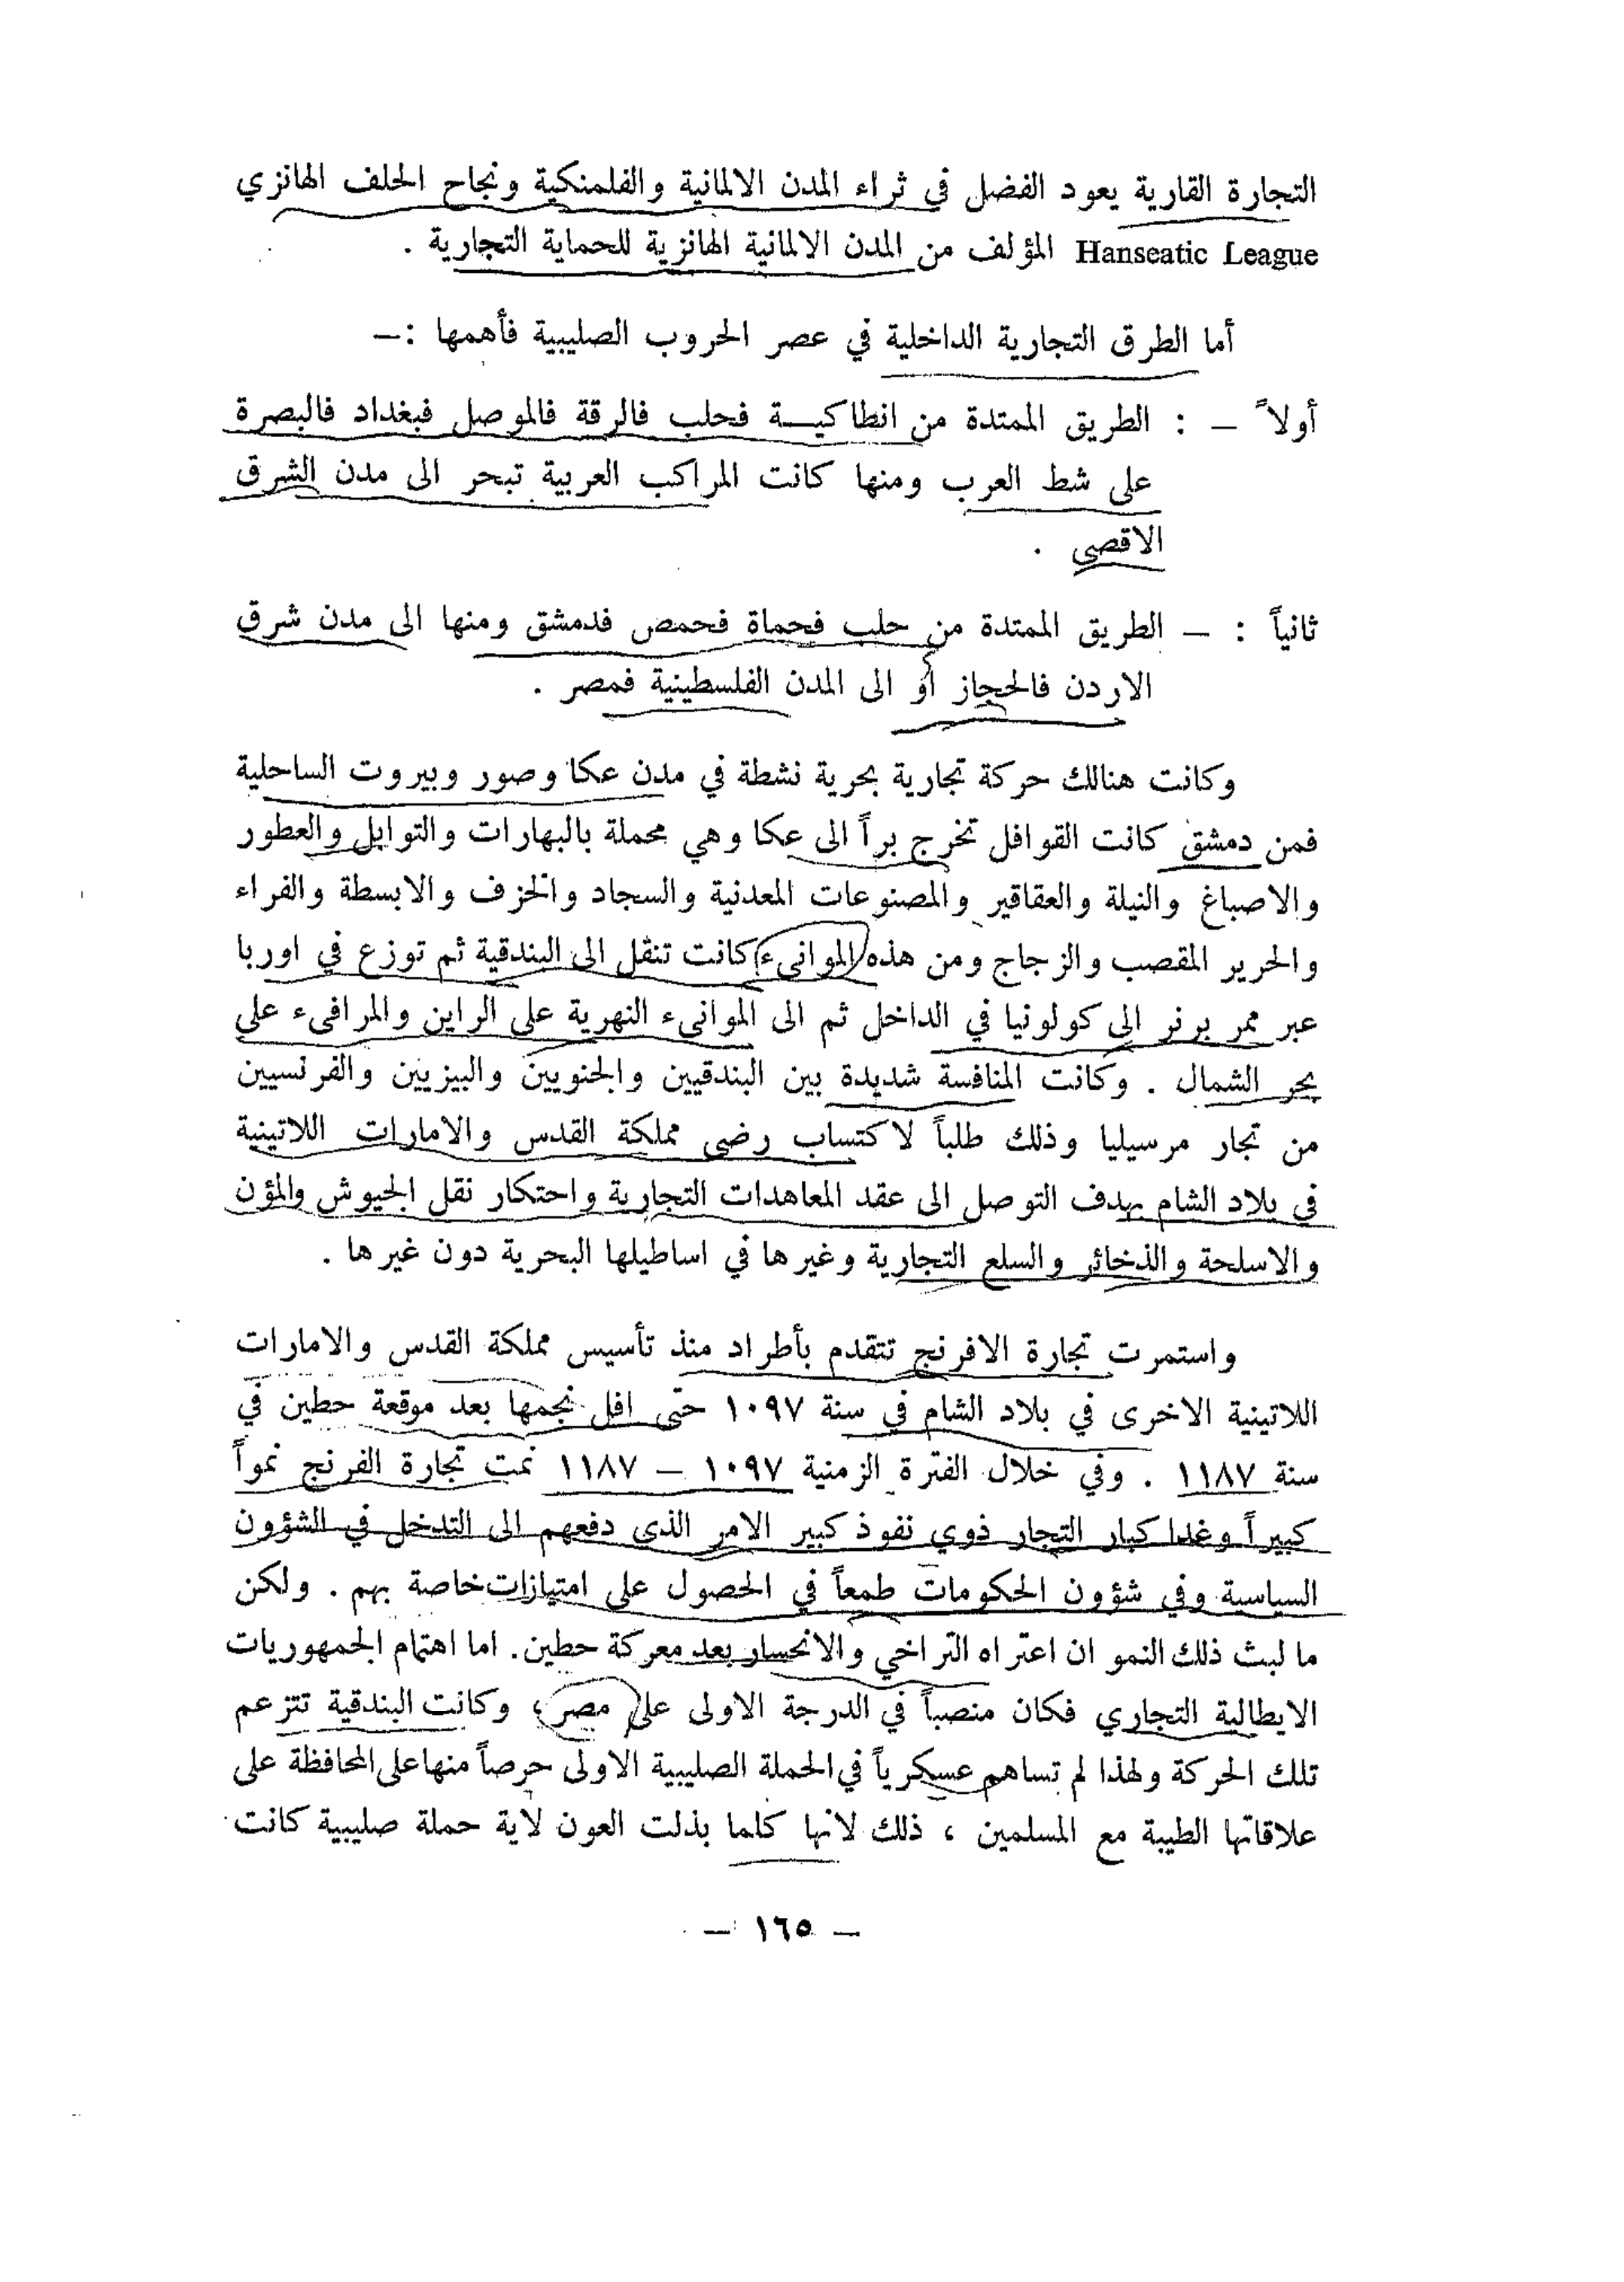 التجارة القارية يعود الفضل في ثراء المدن الالمانية والفلمنكية ونجاح الحلف الهانزي
Hanseatic League المؤلف من المدن الالمانية الهانزية للحماية التجارية .
أما الطرق التجارية الداخلية في عصر الحروب الصليبية فأهمها :—
أولاً — : الطريق الممتدة من انطاكيـة فحلب فالرقة فالموصل فبغداد فالبصرة
على شط العرب ومنها كانت المراكب العربية تبحر الى مدن الشرق
الاقصى .
ثانياً : — الطريق الممتدة من حلب فحماة فحمص فدمشق ومنها الى مدن شرق
الاردن فالحجاز أو الى المدن الفلسطينية فمصر .
وكانت هنالك حركة تجارية بحرية نشطة في مدن عكا وصور وبيروت الساحلية
فمن دمشق كانت القوافل تخرج براً الى عكا وهي محملة بالبهارات والتوابل والعطور
والاصباغ والنيلة والعقاقير والمصنوعات المعدنية والسجاد والخزف والابسطة والفراء
والحرير المقصب والزجاج ومن هذه الموانىء كانت تنقل الى البندقية ثم توزع في اوربا
عبر ممر برنر الى كولونيا في الداخل ثم الى الموانىء النهرية على الراين والمرافىء على
بحر الشمال . وكانت المنافسة شديدة بين البندقيين والجنويين والبيزيين والفرنسيين
من تجار مرسيليا وذلك طلباً لاكتساب رضى مملكة القدس والامارات اللاتينية
في بلاد الشام بهدف التوصل الى عقد المعاهدات التجارية واحتكار نقل الجيوش والمؤن
والاسلحة والذخائر والسلع التجارية وغيرها في اساطيلها البحرية دون غيرها .
واستمرت تجارة الافرنج تتقدم بأطراد منذ تأسيس مملكة القدس والامارات
اللاتينية الاخرى في بلاد الشام في سنة ١٠٩٧ حتى افل نجمها بعد موقعة حطين في
سنة ١١٨٧ . وفي خلال الفترة الزمنية ١٠٩٧ — ١١٨٧ نمت تجارة الفرنج نمواً
كبيراً وغدا كبار التجار ذوي نفوذ كبير الامر الذي دفعهم الى التدخل في الشؤون
السياسية وفي شؤون الحكومات طمعاً في الحصول على امتيازات خاصة بهم . ولكن
ما لبث ذلك النمو ان اعتراه التراخي والانحسار بعد معركة حطين. اما اهتمام الجمهوريات
الايطالية التجاري فكان منصباً في الدرجة الاولى على مصر ، وكانت البندقية تتزعم
تلك الحركة ولهذا لم تساهم عسكرياً في الحملة الصليبية الاولى حرصاً منها على المحافظة على
علاقاتها الطيبة مع المسلمين ، ذلك لانها كلما بذلت العون لاية حملة صليبية كانت
— ١٦٥ —